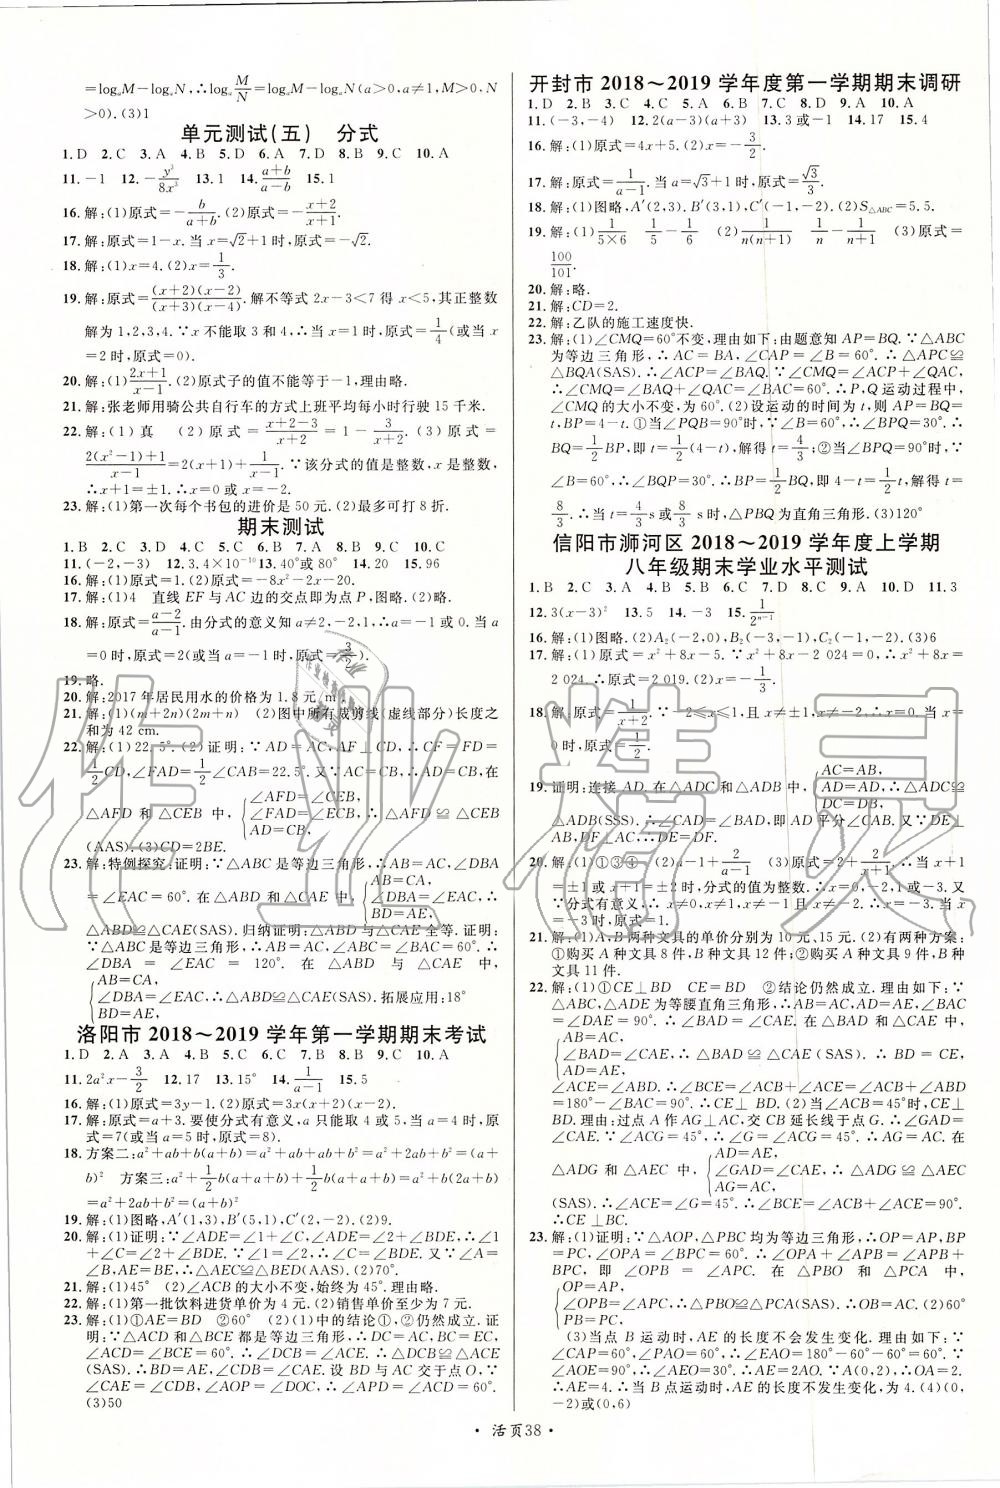 =logₐM-logₐN,∴logₐM/N=logₐM-logₐN(a>0,a≠1,M>0,N
>0).(3)1
单元测试(五) 分式
1.D 2.C 3.A 4.B 5.D 6.A 7.D 8.B 9.C 10.A
11.-1 12.-y³/8x³ 13.1 14.(a+b)/(a-b) 15.1
16.解:(1)原式=-b/(a+b).(2)原式=-(x+2)/(x+1).
17.解:原式=1-x.当x=√2+1时,原式=-√2.
18.解:(1)x=4.(2)x=1/3.
19.解:原式=(x+2)(x-2)/(x+3)(x-4).解不等式2x-3<7得x<5,其正整数
解为1,2,3,4.∵x不能取3和4,∴当x=1时,原式=1/4(或当x
=2时,原式=0).
20.解:(1)(2x+1)/(x-1).(2)原式子的值不能等于-1,理由略.
21.解:张老师用骑公共自行车的方式上班平均每小时行驶15千米.
22.解:(1)真 (2)原式=(x+2-3)/(x+2)=1-3/(x+2).(3)原式=
2(x²-1)+1)/(x-1)=2(x+1)+1/(x-1).∵该分式的值是整数,x是整数,
∴x+1=±1.∴x=0或x=-2.
23.解:(1)第一次每个书包的进价是50元.(2)最多可打8折.
期末测试
1.B 2.C 3.A 4.D 5.D 6.C 7.B 8.B 9.C 10.C
11.(-2,-3) 12.3.4×10⁻¹⁰ 13.40°或70° 14.20 15.96
16.解:(1)原式=-20.(2)原式=-16x²-8x+2.
17.解:(1)4 直线EF与AC边的交点即为点P,图略.(2)图略.
18.解:原式=(a-2)/(a-1).由分式的意义知a≠2,-2,1,∴a=-1或0.当a
=0时,原式=2(或当a=-1时,原式=3/2).
19.略.
20.解:2017年居民用水的价格为1.8元/m³.
21.解:(1)(m+2n)(2m+n) (2)图中所有裁剪线(虚线部分)长度之
和为42 cm.
22.解:(1)22.5°.(2)证明:∵AD=AC,AF⊥CD,∴CF=FD=
1/2CD,∠FAD=1/2∠CAB=22.5°.又∵AC=AD,∴∠CDA=∠DCA=67.5°.∴在
△AFD和△CEB中,{∠AFD=∠CEB,
∴△AFD≌△CEB
(AAS).∴AF=CE.(3)CD=2BE.
23.解:特例探究:证明:∵△ABC是等边三角形,∴AB=AC,∠DBA
=∠EAC=60°.在△ABD和△CAE中,{AB=CA,
∠DBA=∠EAC,∴
BD=AE,
△ABD≌△CAE(SAS).归纳证明:△ABD与△CAE全等.证明:
∵△ABC是等边三角形,∴AB=AC,∠ABC=∠BAC=60°.∴
∠DBA=∠EAC=120°.在△ABD与△CAE中,
{AB=CA,
∠DBA=∠EAC,∴△ABD≌△CAE(SAS).拓展应用:18°
BD=AE,
洛阳市2018~2019学年第一学期期末考试
1.D 2.A 3.A 4.C 5.D 6.C 7.B 8.B 9.C 10.A
11.2a²x-3/2 12.17 13.15° 14.1/(a-1) 15.5
16.解:(1)原式=3y-1.(2)原式=3x(x+2)(x-2).
17.解:原式=a+3.要使分式有意义,a只能取4或5,当a=4时,原
式=7(或当a=5时,原式=8).
18.方案二:a²+ab+b(a+b)=a²+ab+ab+b²=a²+2ab+b²=(a+
b)² 方案三:a²+1/2b(a+a+b)+1/2b(a+a+b)=a²+b(2a+b)=
a²+2ab+b²=(a+b)²
19.解:(1)图略,A′(1,3),B′(5,1),C′(2,-2).(2)9.
20.解:(1)证明:∵∠ADE=∠1+∠C,∠ADE=∠2+∠BDE,∴∠1
+∠C=∠2+∠BDE.∵∠1=∠2,∴∠C=∠BDE.又∵∠A=
∠B,AE=BE,∴△AEC≌△BED(AAS).(2)70°.
21.解:(1)45° (2)∠ACB的大小不变,始终为45°.理由略.
22.解:(1)第一批饮料进货单价为4元.(2)销售单价至少为7元.
23.解:(1)①AE=BD ②60° (2)(1)中的结论①,②仍然成立.证明:
∵△ACD和△BCE都是等边三角形,∴DC=AC,BC=EC,
∠ACD=∠BCE=60°.∴∠DCB=∠ACE.∴△DCB≌△ACE
(SAS).∴BD=AE,∠CDB=∠CAE.设BD与AC交于点O,∵
∠CAE=∠CDB,∠AOP=∠DOC,∴∠APD=∠ACD=60°.
(3)50
开封市2018~2019学年度第一学期期末调研
1.D 2.B 3.C 4.C 5.A 6.B 7.C 8.D 9.B 10.B
11.(-3,-4) 12.2(a-3)(a+3) 13.3或-1 14.17 15.4
16.解:(1)原式=4x+5.(2)x=-3/2.
17.解:原式=1/(a-1).当a=√3+1时,原式=√3/3.
18.解:(1)图略,A′(2,3).B′(3,1),C′(-1,-2).(2)S△ABC=5.5.
19.解:(1)1/(5×6) 1/5-1/6 (2)1/n(n+1) 1/n-1/(n+1) (3)原式=
100/101.
20.解:略.
21.解:CD=2.
22.解:乙队的施工速度快.
23.解:(1)∠CMQ=60°不变,理由如下:由题意知AP=BQ.∵△ABC
为等边三角形,∴AC=BA,∠CAP=∠B=60°.∴△APC≌
△BQA(SAS).∴∠ACP=∠BAQ.∵∠CMQ=∠ACP+∠QAC,
∴∠CMQ=∠BAQ+∠QAC=∠BAC=60°.∴P,Q运动过程中,
∠CMQ的大小不变,为60°.(2)设运动的时间为t,则AP=BQ=
t,BP=4-t.①当∠PQB=90°时,∵∠B=60°,∴∠BPQ=30°.∴
BQ=1/2BP,即t=1/2(4-t),解得t=4/3;②当∠BPQ=90°时,∵
∠B=60°,∴∠BQP=30°.∴BP=1/2BQ,即4-t=1/2t,解得t=
8/3.∴当t=4/3s或8/3s时,△PBQ为直角三角形.(3)120°
信阳市浉河区2018~2019学年度上学期
八年级期末学业水平测试
1.B 2.C 3.A 4.D 5.C 6.A 7.D 8.C 9.A 10.D 11.3
12.3(x-3)² 13.5 14.-3 15.1/2ⁿ⁻¹
16.解:(1)图略.(2)A₂(-2,0),B₂(-3,-1),C₂(-1,-2).(3)6
17.解:(1)原式=x²+8x-5.∵x²+8x-2 024=0,∴x²+8x=
2 024.∴原式=2 019.(2)x=-1/3.
18.解:原式=1/(x+2).∵-2≤x≤1,且x≠±1,x≠-2,∴x=0.当x=
0时,原式=1/2.
19.证明:连接AD.在△ADC和△ADB中,{AC=AB,
AD=AD,∴△ADC≌
DC=DB,
△ADB(SSS).∴∠DAC=∠DAB,即AD平分∠CAB.又∵DE⊥
AB,DF⊥AC,∴DE=DF.
20.解:(1)①③④ (2)a-1+2/(a-1) (3)原式=2+2/(x+1).∴当x+1
=±1或x+1=±2时,分式的值为整数.∴x=0,-2,1或-3.又
∵分式有意义,∴x≠0,x≠1,x≠-1,x≠-2.∴x=-3.当x=
-3时,原式=1.
21.解:(1)A,B两种文具的单价分别为10元、15元.(2)有两种方案:
①购买A种文具8件,B种文具12件;②购买A种文具9件,B种
文具11件.
22.解:(1)①CE⊥BD CE=BD ②结论仍然成立.理由如下:∵
△ABC,△ADE为等腰直角三角形,∴AB=AC,AD=AE,∠BAC
=∠DAE=90°.∴∠BAD=∠CAE.在△BAD与△CAE中,
{AB=AC,
∠BAD=∠CAE,∴△BAD≌△CAE(SAS).∴BD=CE,
AD=AE.
∠ACE=∠ABD.∴∠BCE=∠ACB+∠ACE=∠ACB+∠ABD
=180°-∠BAC=90°.∴CE⊥BD.(2)当∠ACB=45°时,CE⊥
BD.理由:过点A作AG⊥AC,交CB延长线于点G.∴∠GAD=
∠CAE.∵∠ACG=45°,∴∠G=∠ACG=45°.∴AG=AC.在
△ADG和△AEC中,{AD=AE,
∠GAD=∠CAE,∴△ADG≌△AEC
AG=AC,
(SAS).∴∠ACE=∠G=45°.∴∠BCE=∠ACB+∠ACE=90°.
∴CE⊥BC.
23.解:(1)证明:∵△AOP,△PBC均为等边三角形,∴OP=AP,BP
=PC,∠OPA=∠BPC=60°.∴∠OPA+∠APB=∠APB+
∠BPC,即∠OPB=∠APC.在△PBO和△PCA中,
{OP=AP,
∠OPB=∠APC,∴△PBO≌△PCA(SAS).∴OB=AC.(2)60°
PB=PC,
(3)当点B运动时,AE的长度不会发生变化.理由如下:∵
∠CAP=60°,∠PAO=60°,∴∠EAO=180°-60°-60°=60°.∵
∠AOE=90°,∴∠AEO=30°.∴AE=2AO.∵A(0,2),∴OA=2.
∴AE=4.∴当B点运动时,AE的长度不发生变化,为4.(4)(0,
-2)或(0,6)
·活页38·